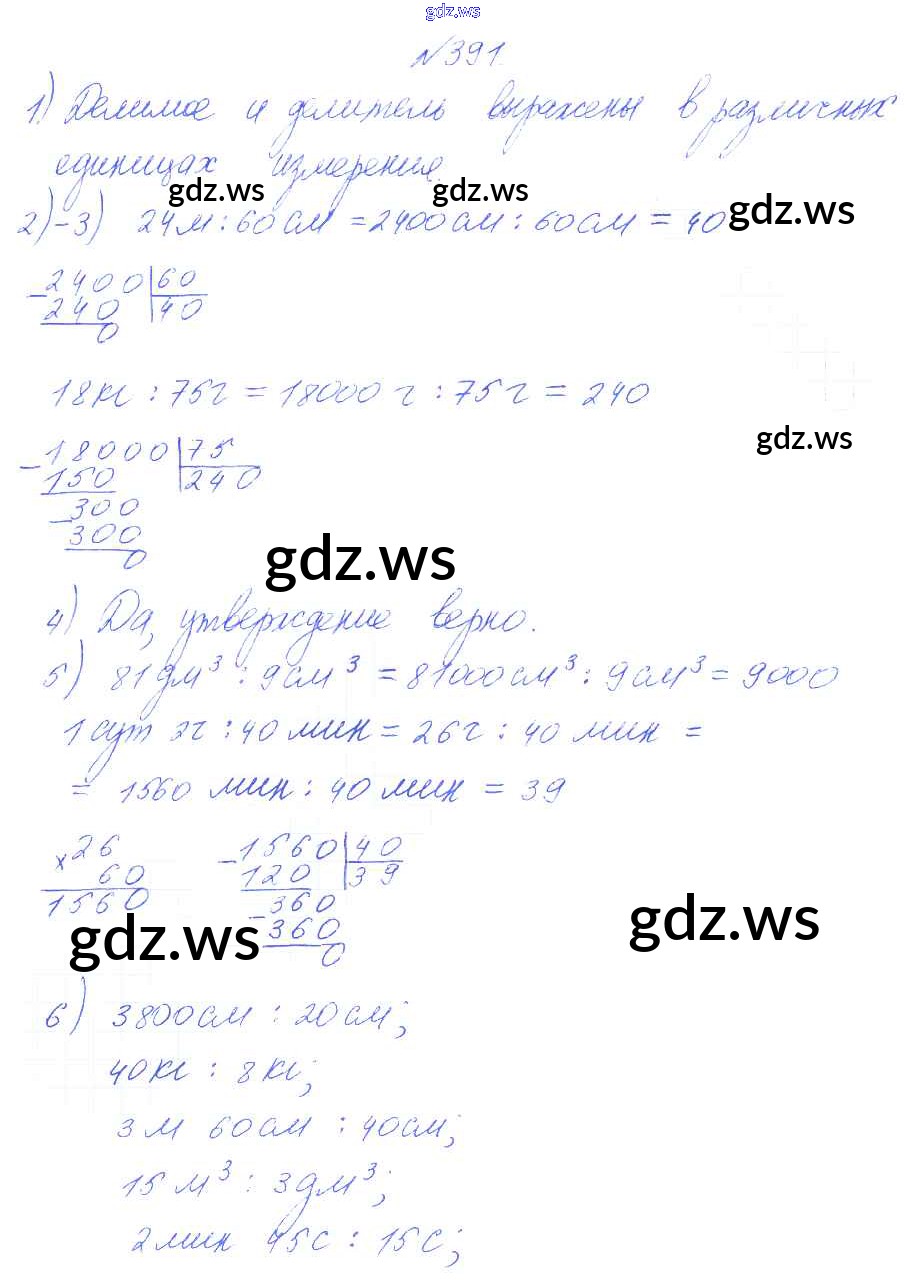 gdz.ws
№391
1) Делимое и делитель выражены в различных
единицах измерения.
gdz.ws gdz.ws gdz.ws
2)-3) 24м : 60см = 2400см : 60см = 40
- 2400 | 60
240 | 40
0
18кг : 75г = 18000г : 75г = 240
gdz.ws
- 18000 | 75
150 | 240
- 300
300
0
gdz.ws
4) Да, утверждение верно.
5) 81дм³ : 9см³ = 81000см³ : 9см³ = 9000
1 сут 2ч : 40 мин = 26ч : 40 мин =
= 1560 мин : 40 мин = 39
× 26 - 1560 | 40
60 120 | 39
1560 - 360
360
0
gdz.ws gdz.ws
6) 3800см : 20см;
40кг : 8кг;
3м 60см : 40см;
15м³ : 3дм³;
2мин 45с : 15с;